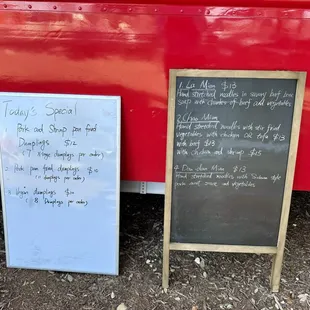 Today's Special
Pork and Shrimp pan fried
Dumplings $12
(7 large dumplings per order)
Pork pan fried dumplings $10
dumplings per order)
Vegan dumplings $10
(8 Dumplings per order)
1. La Mian $13
Hand stretched noodles in savory beef bone
soup with chamber of beef and vegetables
2. Chao Mian
Hand stretched noodles with stir fried
Vegetables with chicken Oil style $13
with beef $13
with chicken and shrimp $15
Dan dan Mian $13
Hand stretched noodles with Sichuan style
sauce and vegetables